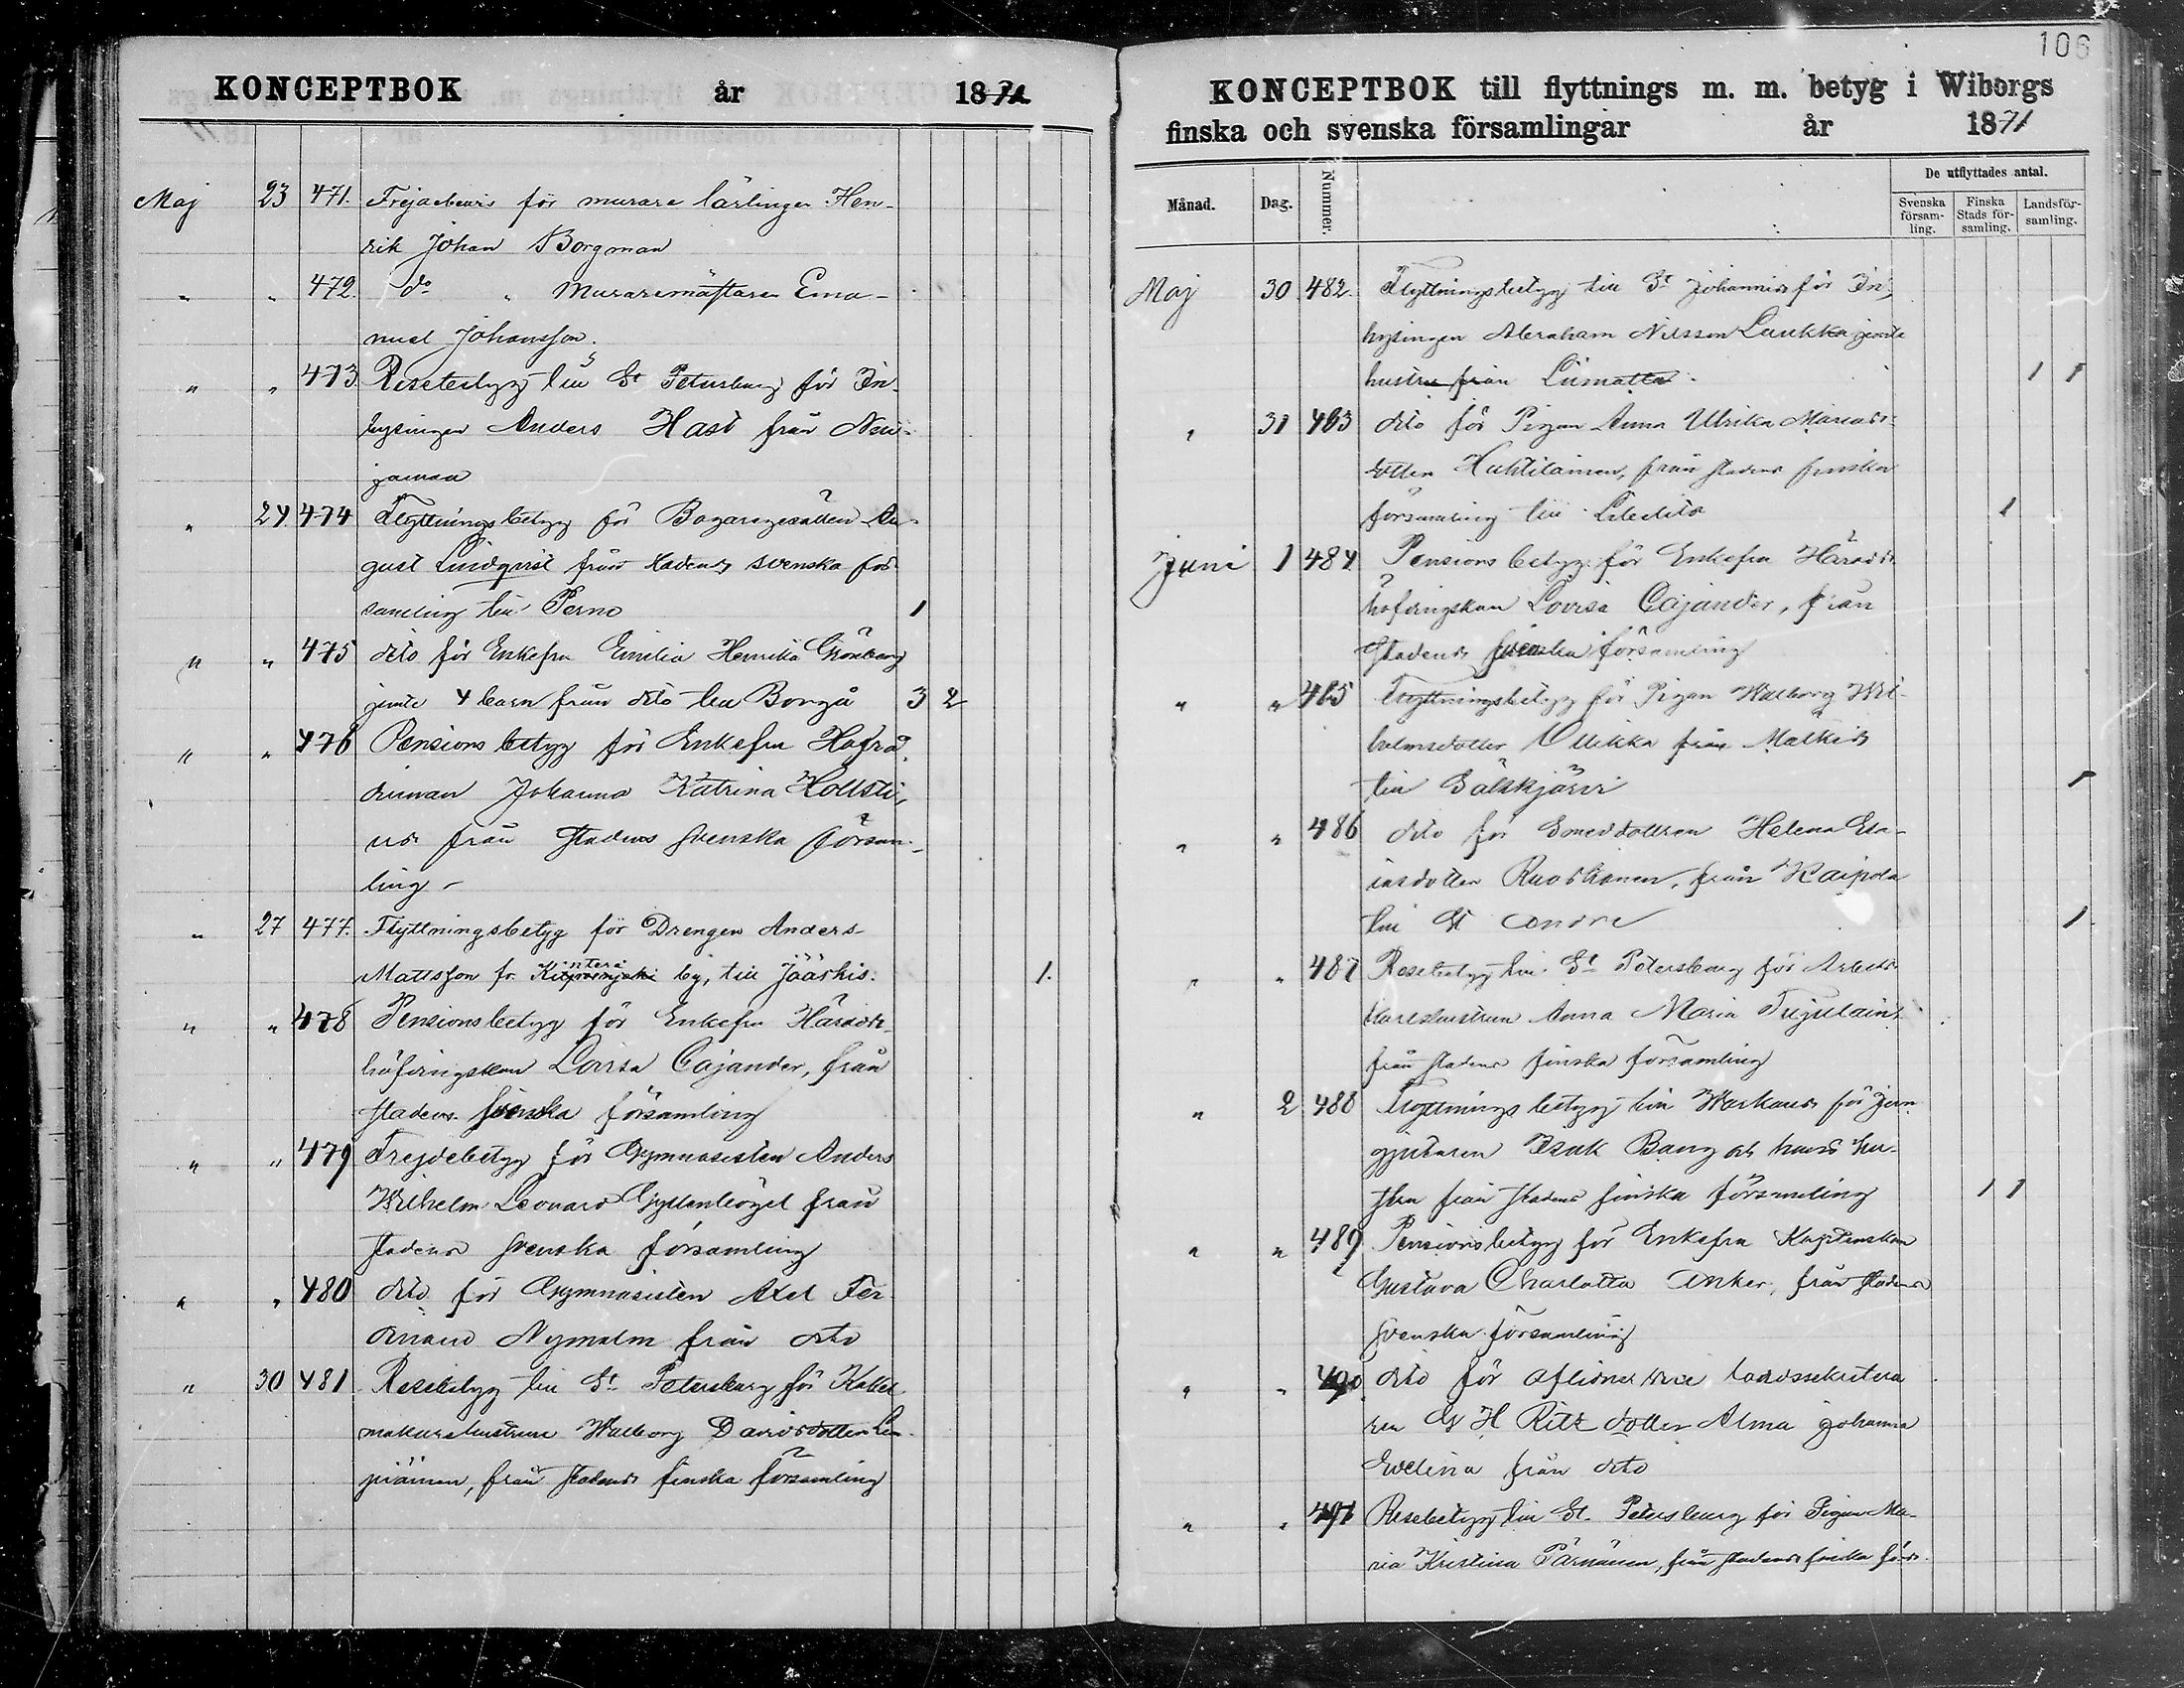 KONCEPTBOK år 1871
Maj 23 471. Frejdebevis för murare lärlingen Hen-
rik Johan Borgman
" " 472. do " Muraremästaren Ema-
nuel Johansson.
" " 473 Resebetyg till St Petersburg för In-
hysingen Anders Hast från Nui-
jamaa
" 24 474 Flyttningsbetyg för Bagaregesällen Au-
gust Lindqvist från stadens svenska för
samling till Perno 1
" " 475 dito för Enkefru Emilia Henrika Grönberg
jemte 4 barn från dito till Borgå 3 2
" " 476 Pensionsbetyg för Enkefru Hofrå-
dinnan Johanna Katrina Holtsti-
us från stadens svenska försam-
ling -
" 27 477. Flyttningsbetyg för Drengen Anders
Mattsson fr. by, till Jääskis. 1.
" " 478 Pensionsbetyg för Enkefru Härads-
höfdingskan Lovisa Cajander, från
stadens svenska församling
" " 479 Frejdebetyg för Gymnasisten Anders
Wilhelm Leonard Gyllenbögel från
stadens svenska församling
" " 480 dito för Gymnasisten Axel Fer
dinand Nymalm från dito
" 30 481 Resebetyg till St Petersburg för Kakel
makarehustrun Walborg Davidsdotter
från stadens finska församling
106
KONCEPTBOK till flyttnings m. m. betyg i Wiborgs
finska och svenska församlingar år 1871
Månad. Dag. Nummer. De utflyttades antal.
Svenska församling. Finska Stads församling. Landsförsamling.
Maj 30 482. Flyttningsbetyg till St Johannis för In-
hysingen Abraham Nilsson Laukka jemte
hustru från Liimatta. 1 1
" 31 483 dito för Pigan Anna Ulrika
dotter Huhtilainen, från stadens finska
församling till Libelits 1
Juni 1 484 Pensionsbetyg för Enkefru Härads
höfdingskan Lovisa Cajander, från
Stadens svenska församling
" " 485 Flyttningsbetyg för Pigan Walborg Wil-
helmsdotter Ollikka från Mälkiä
till Sälkkjärvi 1
" " 486 dito för Smeddottren Helena Esa-
iasdotter Ruoskanen, från Kaipola
till St Andre 1
" " 487 Resebetyg till St Petersburg för Arbets
karlshustrun Anna Maria
från stadens finska församling
" 2 488 Flyttningsbetyg till Warkaus för Jern
gjutaren Isak Bang och hans hu-
stru från stadens finska församling 1 1
" " 489 Pensionsbetyg för Enkefru Kaptenskan
Gustava Charlotta Anker, från stadens
svenska församling
" " 490 dito för aflidne vice landssekretera
ren G H Ritz dotter Alma Johanna
Evelina från dito
" " 491 Resebetyg till St. Petersburg för Pigan Ma-
ria Kristina Pärnänen, från stadens finska förs.